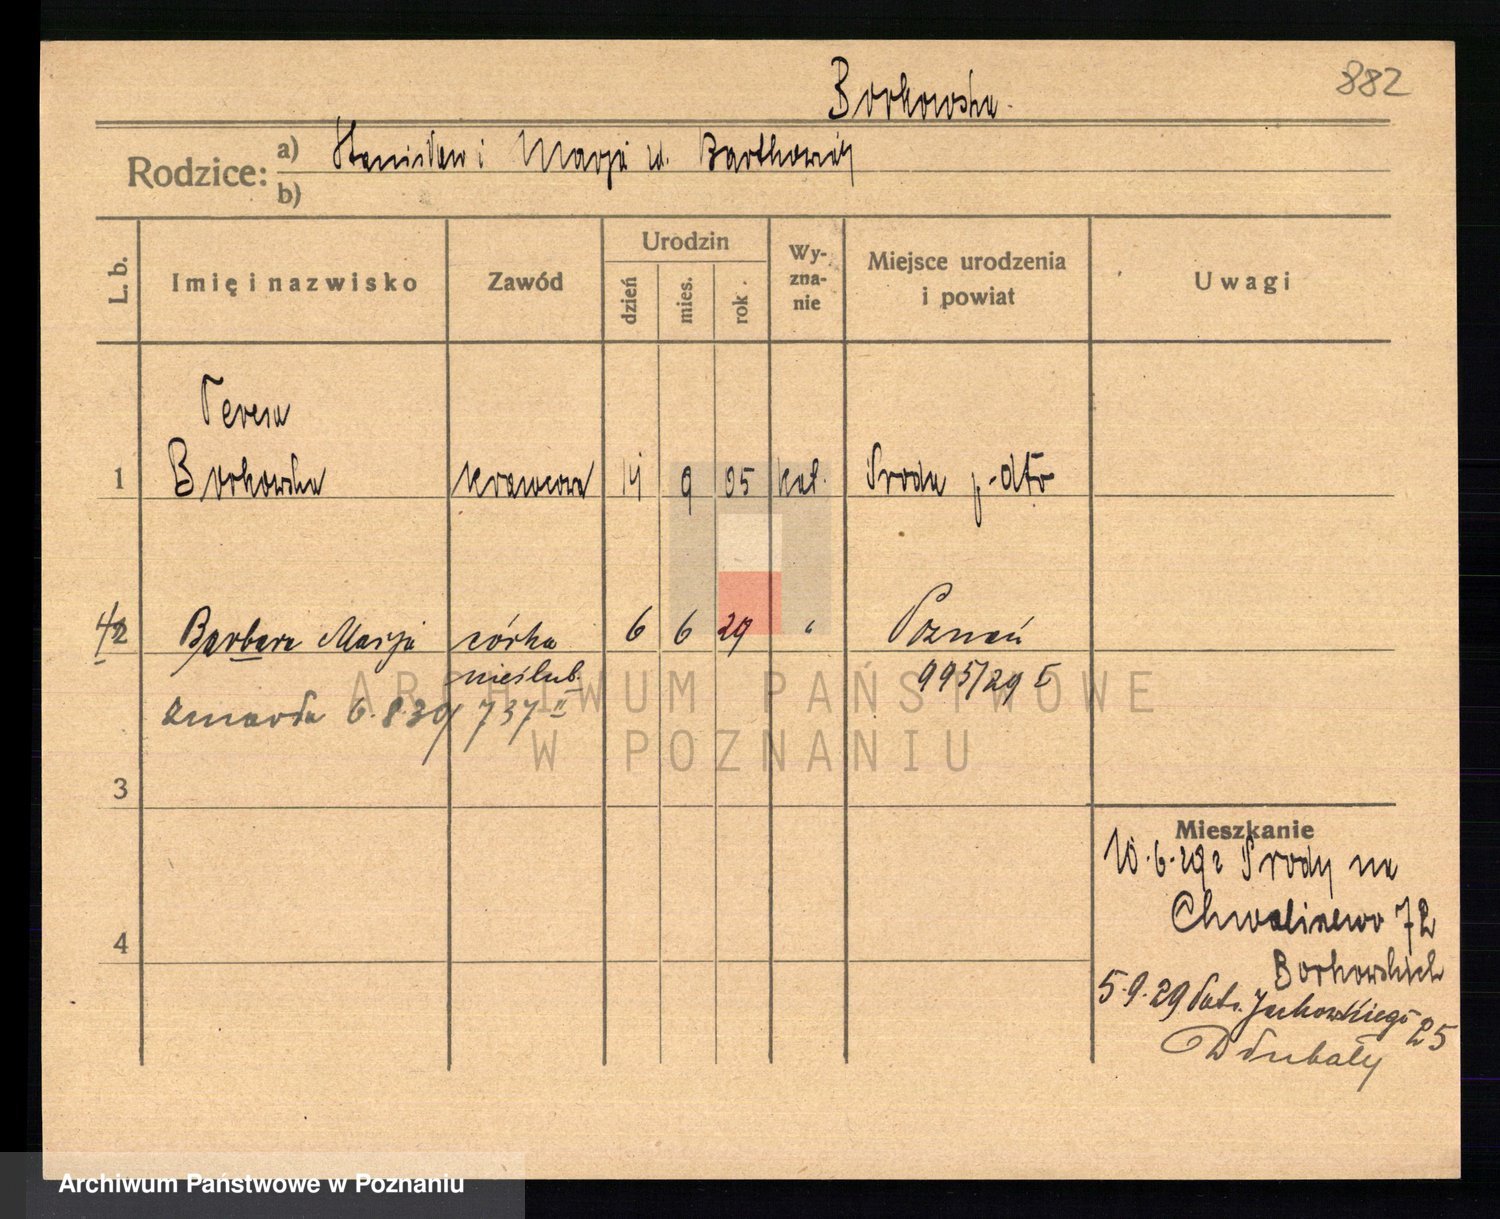 882
Borkowska.
Rodzice: a) Stanisław i Marja ur. Bartkowiak
b)
L. b. Imię i nazwisko Zawód Urodzin dzień mies. rok. Wy-zna-nie Miejsce urodzenia i powiat Uwagi
Teresa
1 Borkowska krawcowa 14 9 05 kat. Środa p. dto
2 Barbara Marja córka 6 6 29 " Poznań
nieślub. 995/29 I
zmarła 6.8.30/737 II
ARCHIWUM PAŃSTWOWE
W POZNANIU
3
Mieszkanie
10.6.29 z Środy na
Chwaliszewo 72
4
Borkowskich
5.9.29 Jackowskiego 25
Archiwum Państwowe w Poznaniu